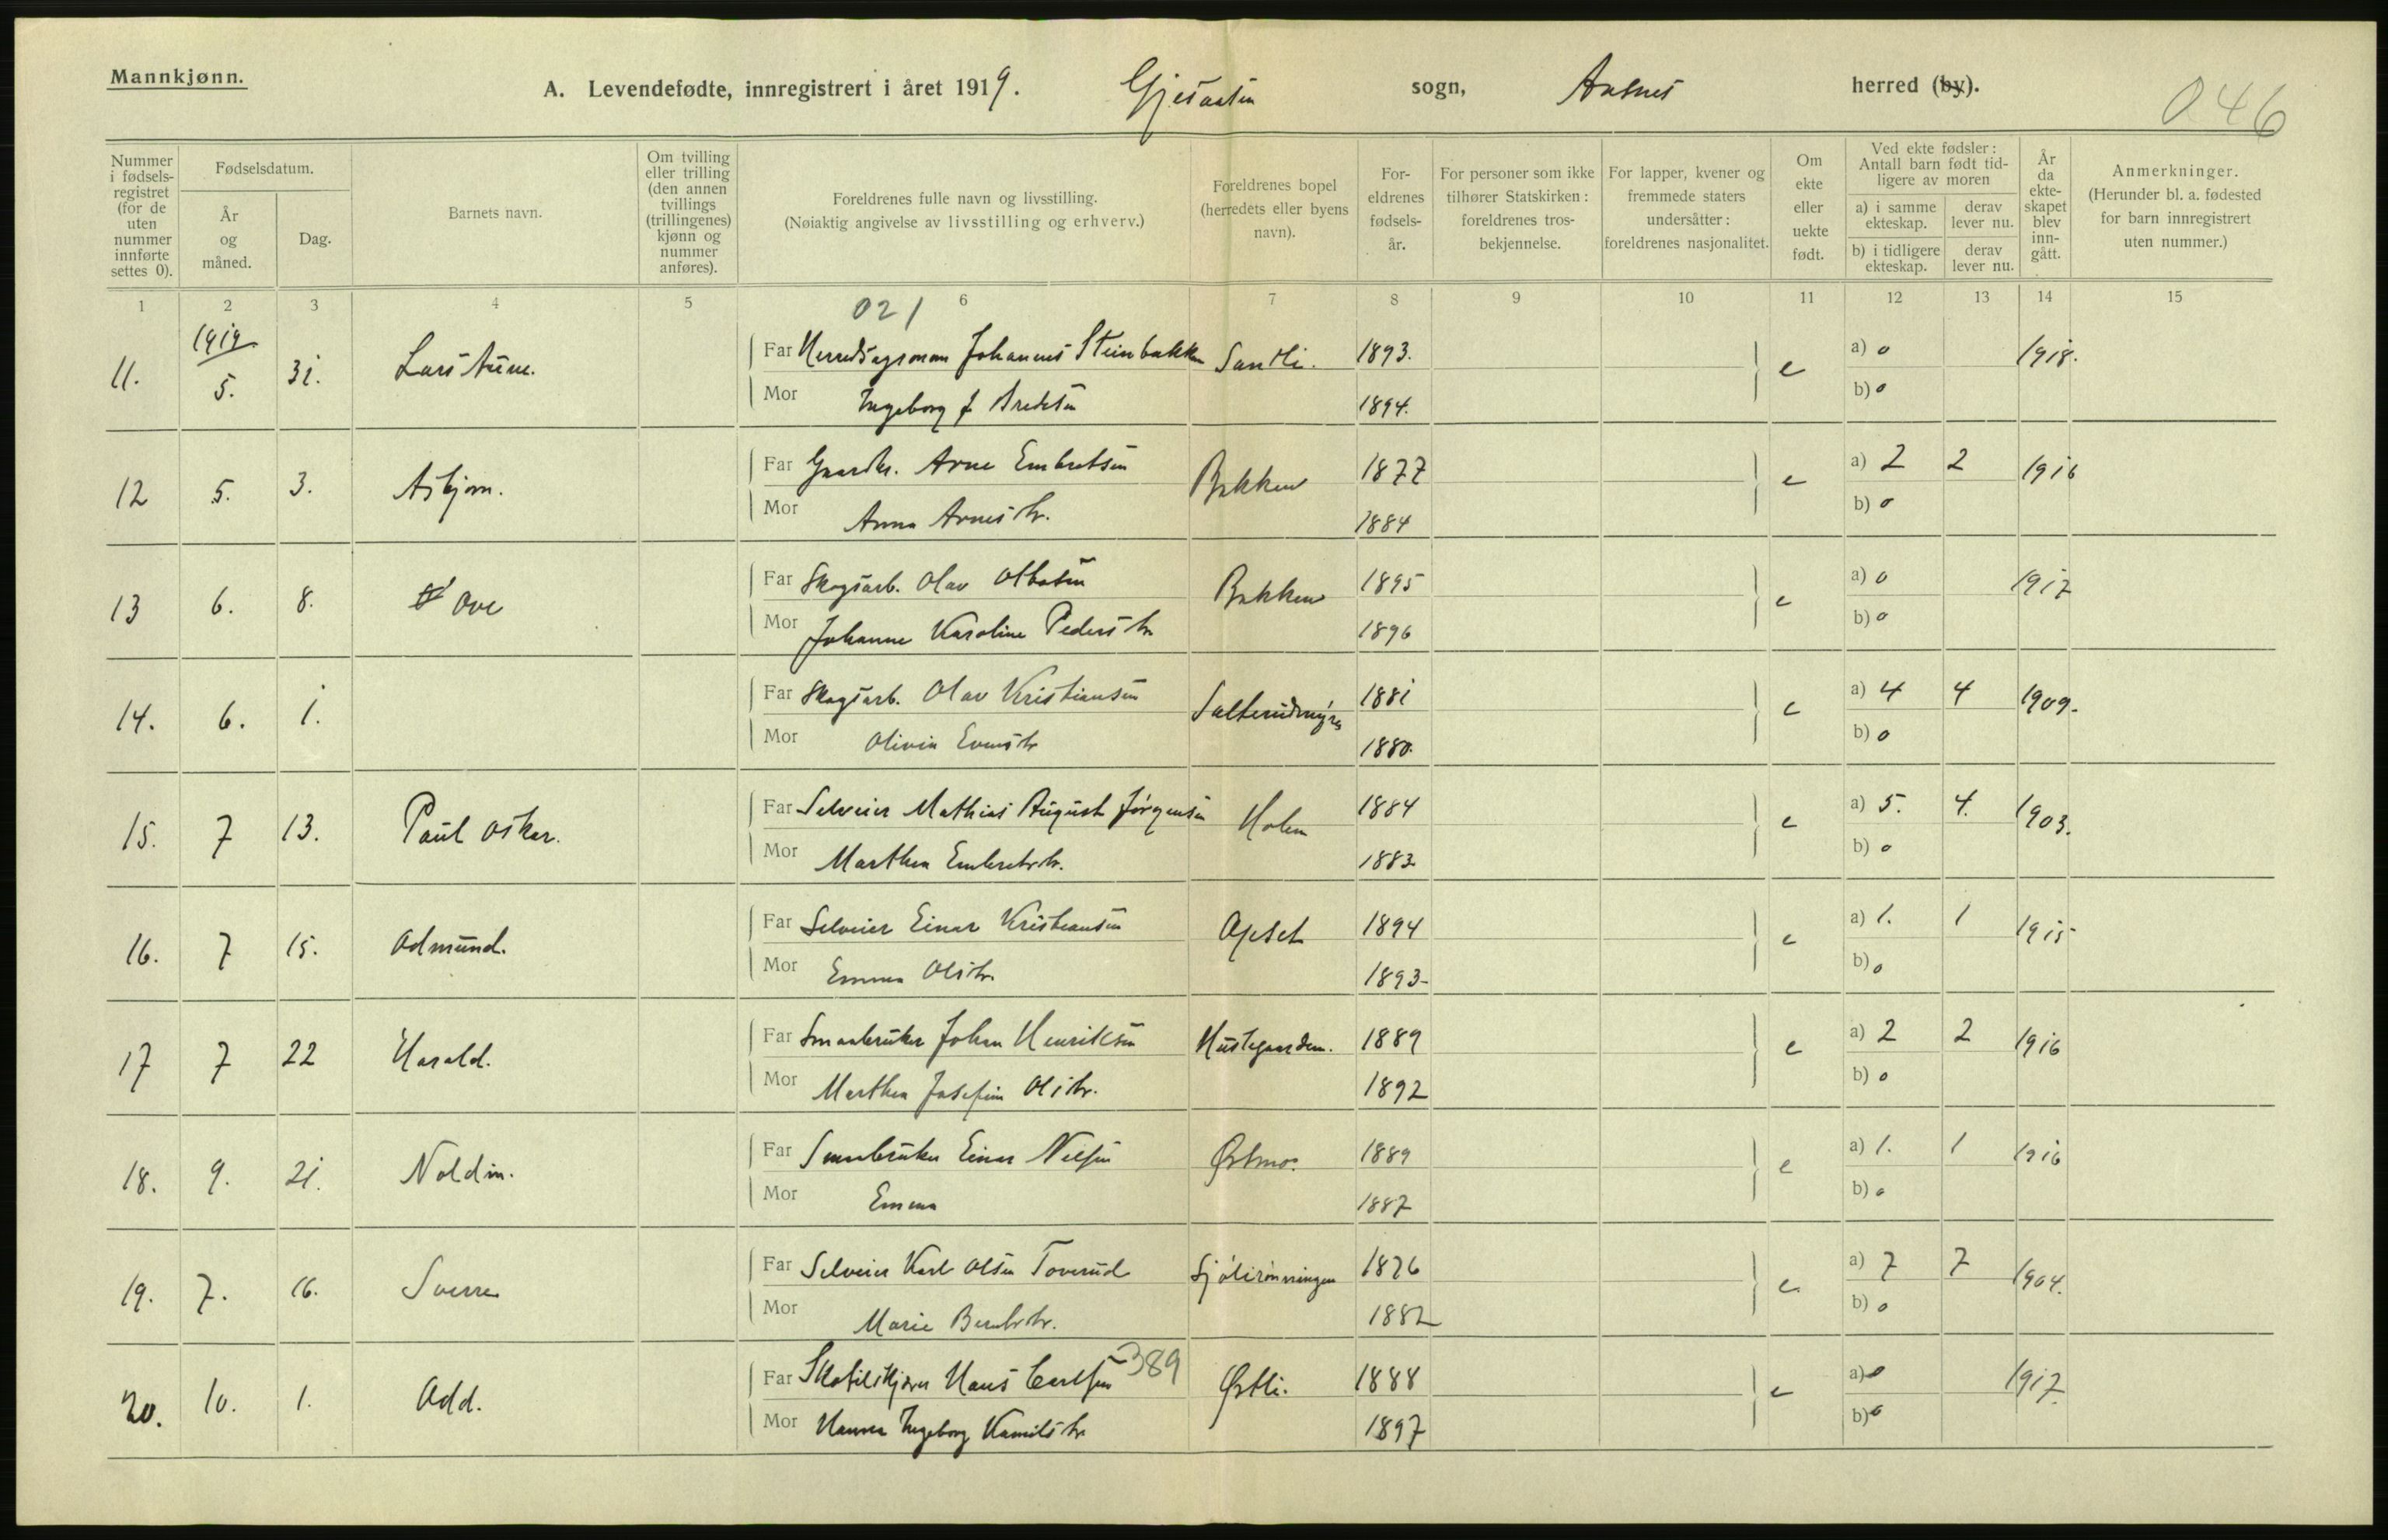 Mannkjønn.
A. Levendefødte, innregistrert i året 1919. Gjesaasen sogn, Aasnes herred (by).
046
Nummer i fødsels-registret (for de uten nummer innførte settes 0).
Fødselsdatum.
År og måned.
Dag.
Barnets navn.
Om tvilling eller trilling (den annen tvillings (trillingenes) kjønn og nummer anføres).
Foreldrenes fulle navn og livsstilling.
(Nøiaktig angivelse av livsstilling og erhverv.)
Foreldrenes bopel (herredets eller byens navn).
For-eldrenes fødsels-år.
For personer som ikke tilhører Statskirken: foreldrenes tros-bekjennelse.
For lapper, kvener og fremmede staters undersåtter: foreldrenes nasjonalitet.
Om ekte eller uekte født.
Ved ekte fødsler: Antall barn født tid-ligere av moren
a) i samme ekteskap.
derav lever nu.
b) i tidligere ekteskap.
derav lever nu.
År da ekte-skapet blev inn-gått.
Anmerkninger.
(Herunder bl. a. fødested for barn innregistrert uten nummer.)
1 2 3 4 5 6 7 8 9 10 11 12 13 14 15
021
1919
11. 5. 31. Lars Aune. Far Herredsagronom Johannes Steinbakken Sandli. 1893. e a) 0 1918.
Mor Ingeborg f Bredesen 1894. b) 0
12 5. 3. Asbjørn. Far Gaardbr. Arne Embretsen Bakken 1877 e a) 2 2 1916
Mor Anna Arnesdtr. 1884 b) 0
13 6. 8. Ove Far Skogsarb. Olav Olbersen Bakken 1895 e a) 0 1917
Mor Johanne Karoline Pedersdtr 1896 b) 0
14. 6. 1. Far Skogsarb. Olav Kristiansen 1881 e a) 4 4 1909.
Mor Olivia Evensdtr 1880. b) 0
15. 7 13. Paul Oskar. Far Selveier Mathias August Jørgensen Holen 1884 e a) 5. 4. 1903.
Mor Marthea Embretsdtr. 1883 b) 0
16. 7 15. Odmund. Far Selveier Einar Kristiansen Opset 1894 e a) 1. 1 1915
Mor Emma Olsdtr. 1893 b) 0
17 7 22 Harald. Far Smaabruker Johan Henriksen Hustegaarden. 1889 e a) 2 2 1916
Mor Marthea Josefine Olsdtr. 1892 b) 0
18. 9. 21. Noldin. Far Smaabruker Einar Nilsen Østmo. 1889 e a) 1. 1 1916
Mor Emma 1887 b) 0
19. 7. 16. Sverre Far Selveier Karl Olsen Toverud Sjølirønningen 1876 e. a) 7 7 1904.
Mor Marie Berntsdtr. 1882 b) 0
389
20. 10. 1. Odd. Far Hans Carlsen Østli. 1888 e a) 0 1917.
Mor Hanna Ingeborg Kamilsdtr 1897 b) 0